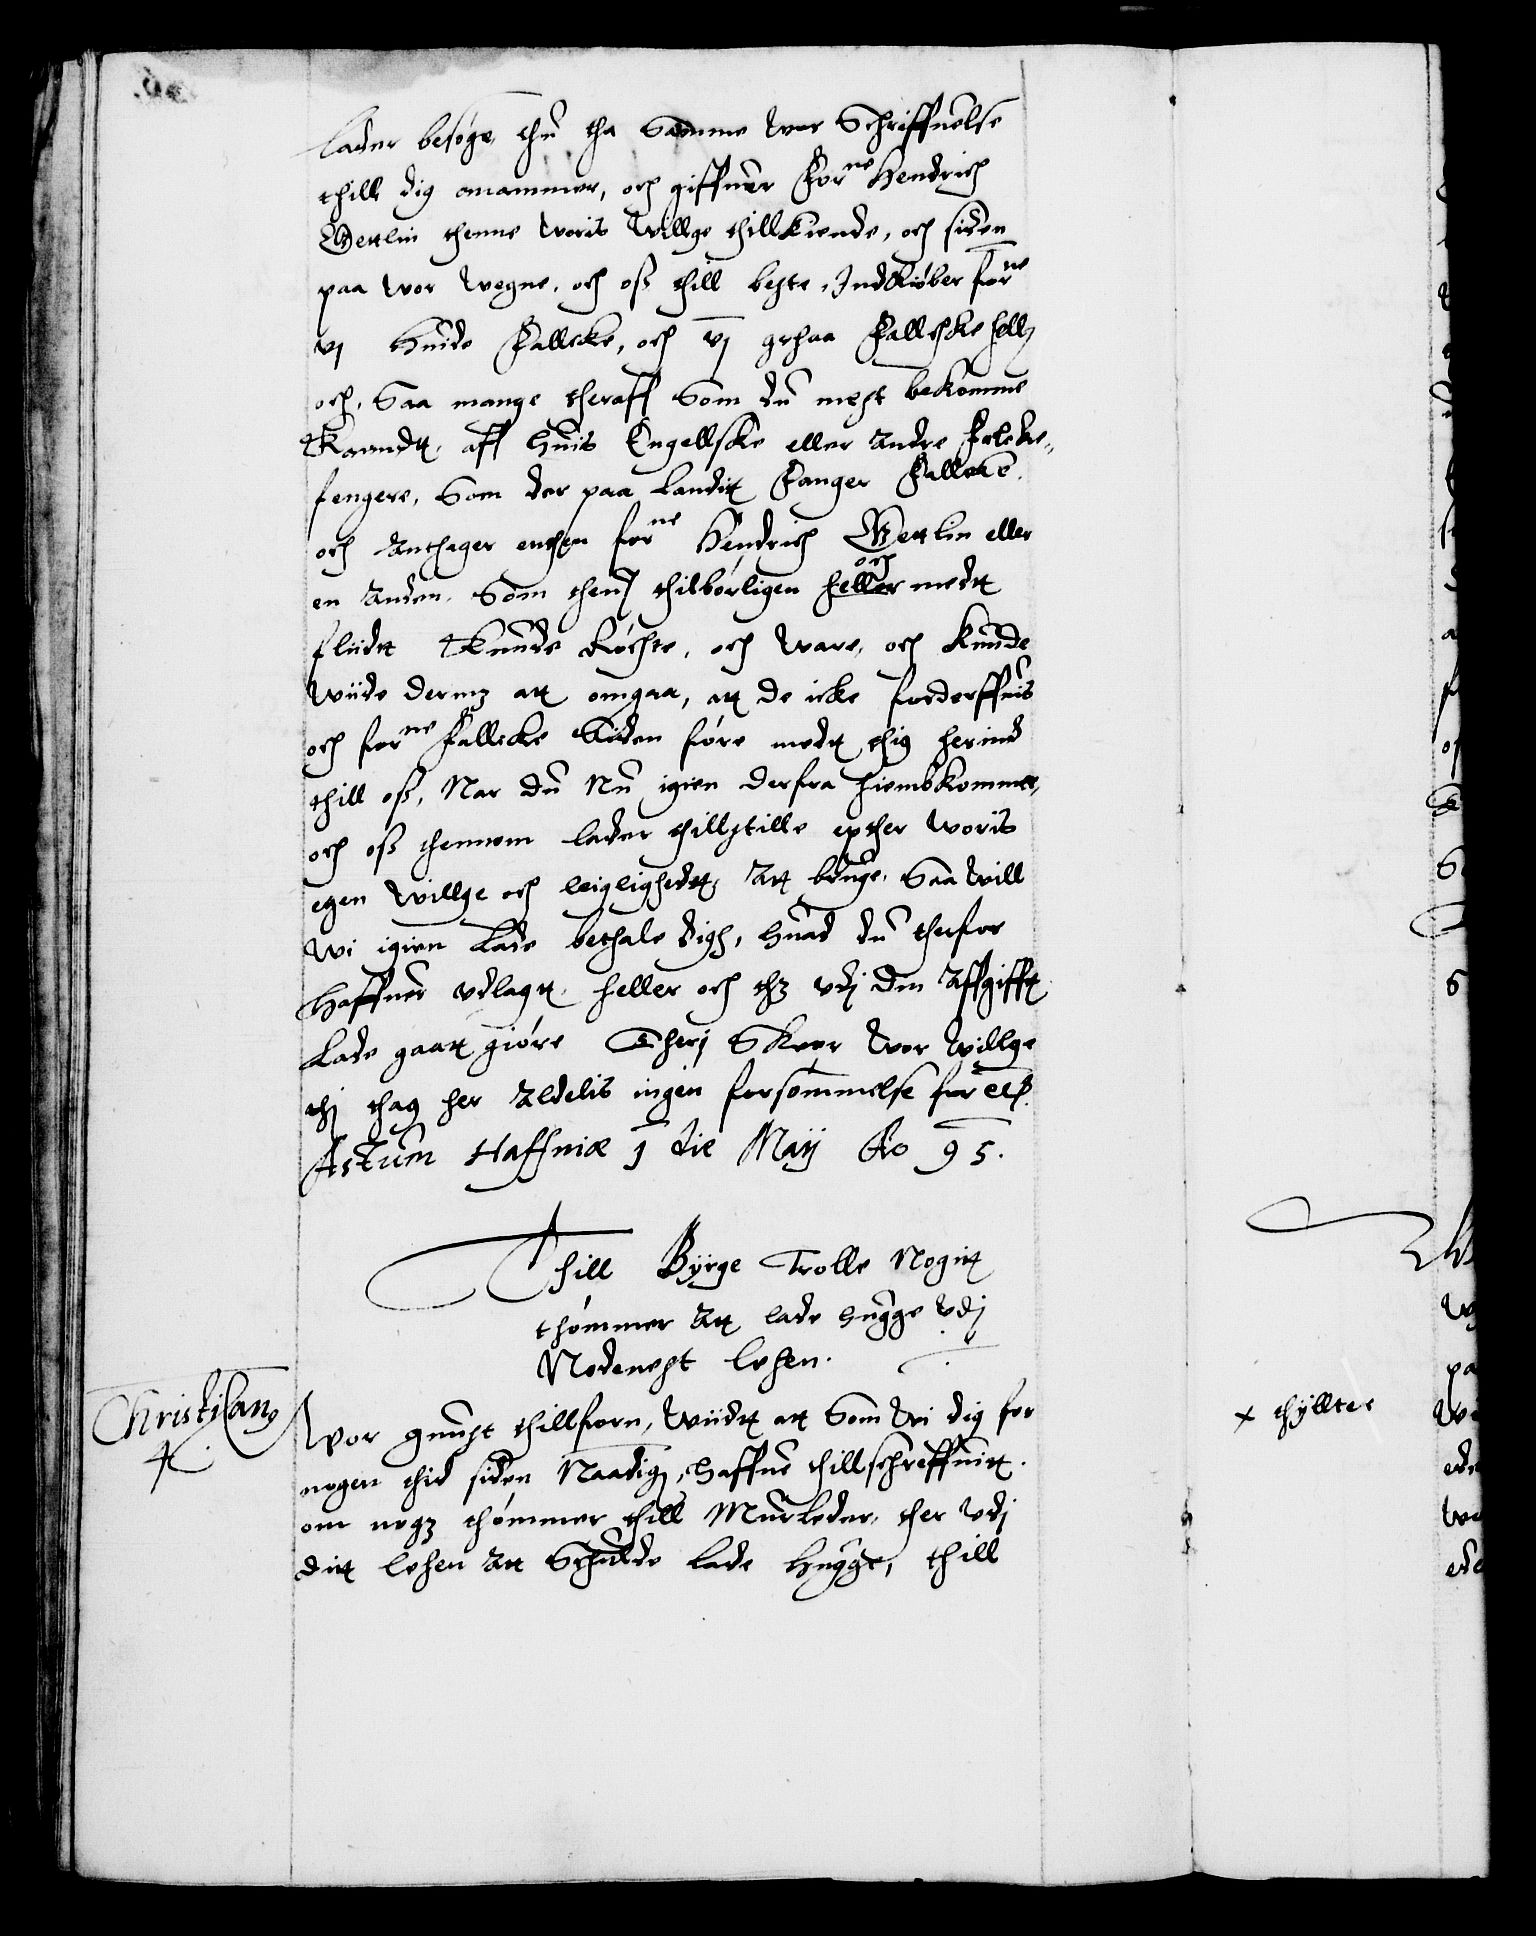 lader besøge, thu tha Samme wor Schriffuelse
thill dig anammer, och giffuer For^ne Hendrich
Wettlin thenne woris willge thillkiende, och siden
paa wor wegne, och oss thill beste, Indkiøber for^ne
vj huide Fallcke, och vj grhaa Fallcke helle
och, Saa mange theraff Som du mest bekomme
kandt, aff huis Engellske eller andre Falcke,,
fengere, Som der paa landit Fanger Fallcke
och anthager enthen for^ne Hendrich Wettlin eller
en anden, Som thenj thilbørligen heller och medt
fliidt kunde Røchte, och ware, och kunde
wiide dermz att omgaa, att de icke forderffuis
och for^ne Fallcke Siden føre medt thig herind
thill oss, Nar du Nu igien derfra hiembkommer,
och oss thennom lader thillstille epther woris
egen willge och leiglighedt, att bruge, Saa will
wi igien lade bethale digh, huad du therfor
haffuer vdlagt, heller och thz vdj din affgifft
lade gaatt giøre Therj Skeer wor willge
thj thag her aldelis ingen forsømmelse for etc.
Actum Haffniæ 1 die Maij Ao 95.
Thill Byrge Trolle Nogit
thømmer att lade hugge vdj
Nedenest lehen.
Christian
4
Wor gunst thillforn, wiidt att Som wi dig for
nogen thid siden Naadigt, haffue thillschreffuitt
om nogz thømmer thill Murleder, ther vdj
dit lehen att Schulde lade hugge, thill
× thylltee